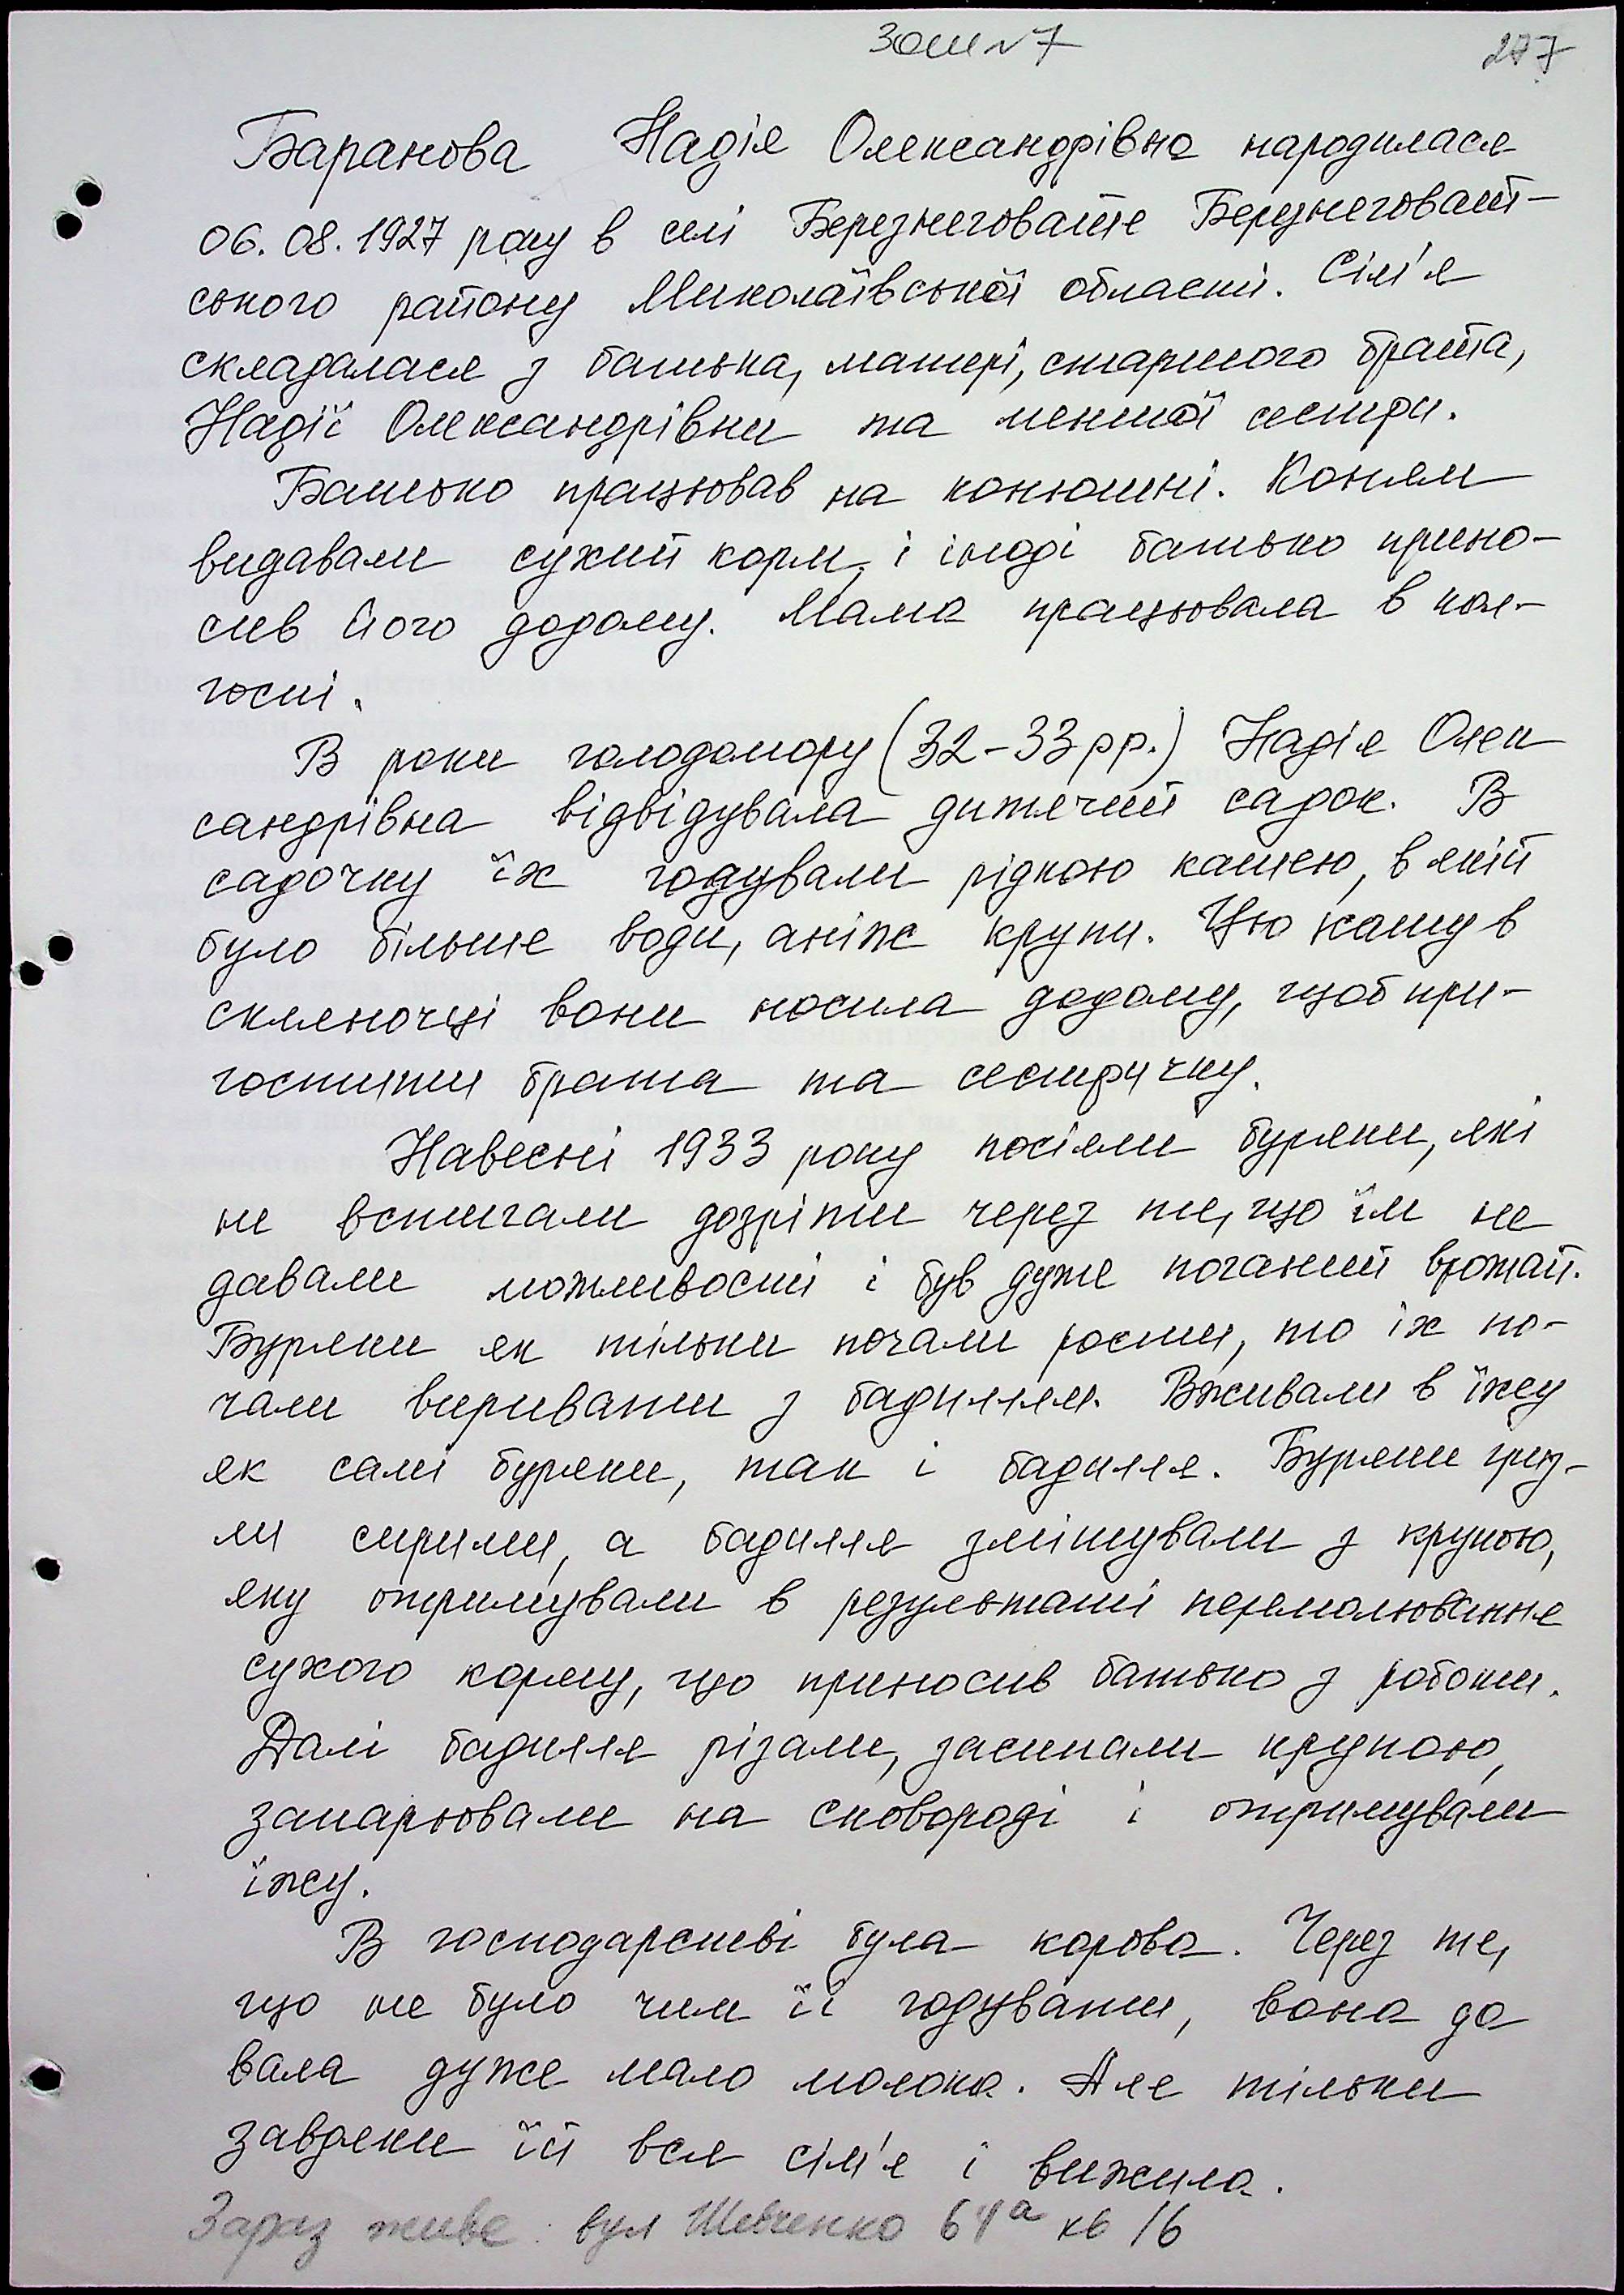 ЗОШ №7
277
Баранова Надія Олександрівна народилася
06.08.1927 року в селі Березнеговате Березнеговат-
ського району Миколаївської області. Сім'я
складалася з батька, матері, старшого брата,
Надії Олександрівни та меншої сестри.
Батько працював на конюшні. Коням
видавали сухий корм, і іноді батько прино-
сив його додому. Мама працювала в кол-
госпі.
В роки голодомору (32-33 рр.) Надія Олек
сандрівна відвідувала дитячий садок. В
садочку їх годували рідкою кашею, в якій
було більше води, аніж крупи. Цю кашу в
скляночці вони носила додому, щоб при-
гостити брата та сестричку.
Навесні 1933 року посіяли буряки, які
не встигали дозріти через те, що їм не
давали можливості і був дуже поганий врожай.
Буряки як тільки почали рости, то їх по-
чали виривати з бадиллям. Вживали в їжу
як самі буряки, так і бадилля. Буряки гриз-
ли сирими, а бадилля змішували з крупою,
яку отримували в результаті перемолювання
сухого корму, що приносив батько з роботи.
Далі бадилля різали, засипали крупою,
запарювали на сковороді і отримували
їжу.
В господарстві була корова. Через те,
що не було чим її годувати, вона да
вала дуже мало молока. Але тільки
завдяки їй вся сім'я і вижила.
Зараз живе: вул Шевченко 64а кв 16